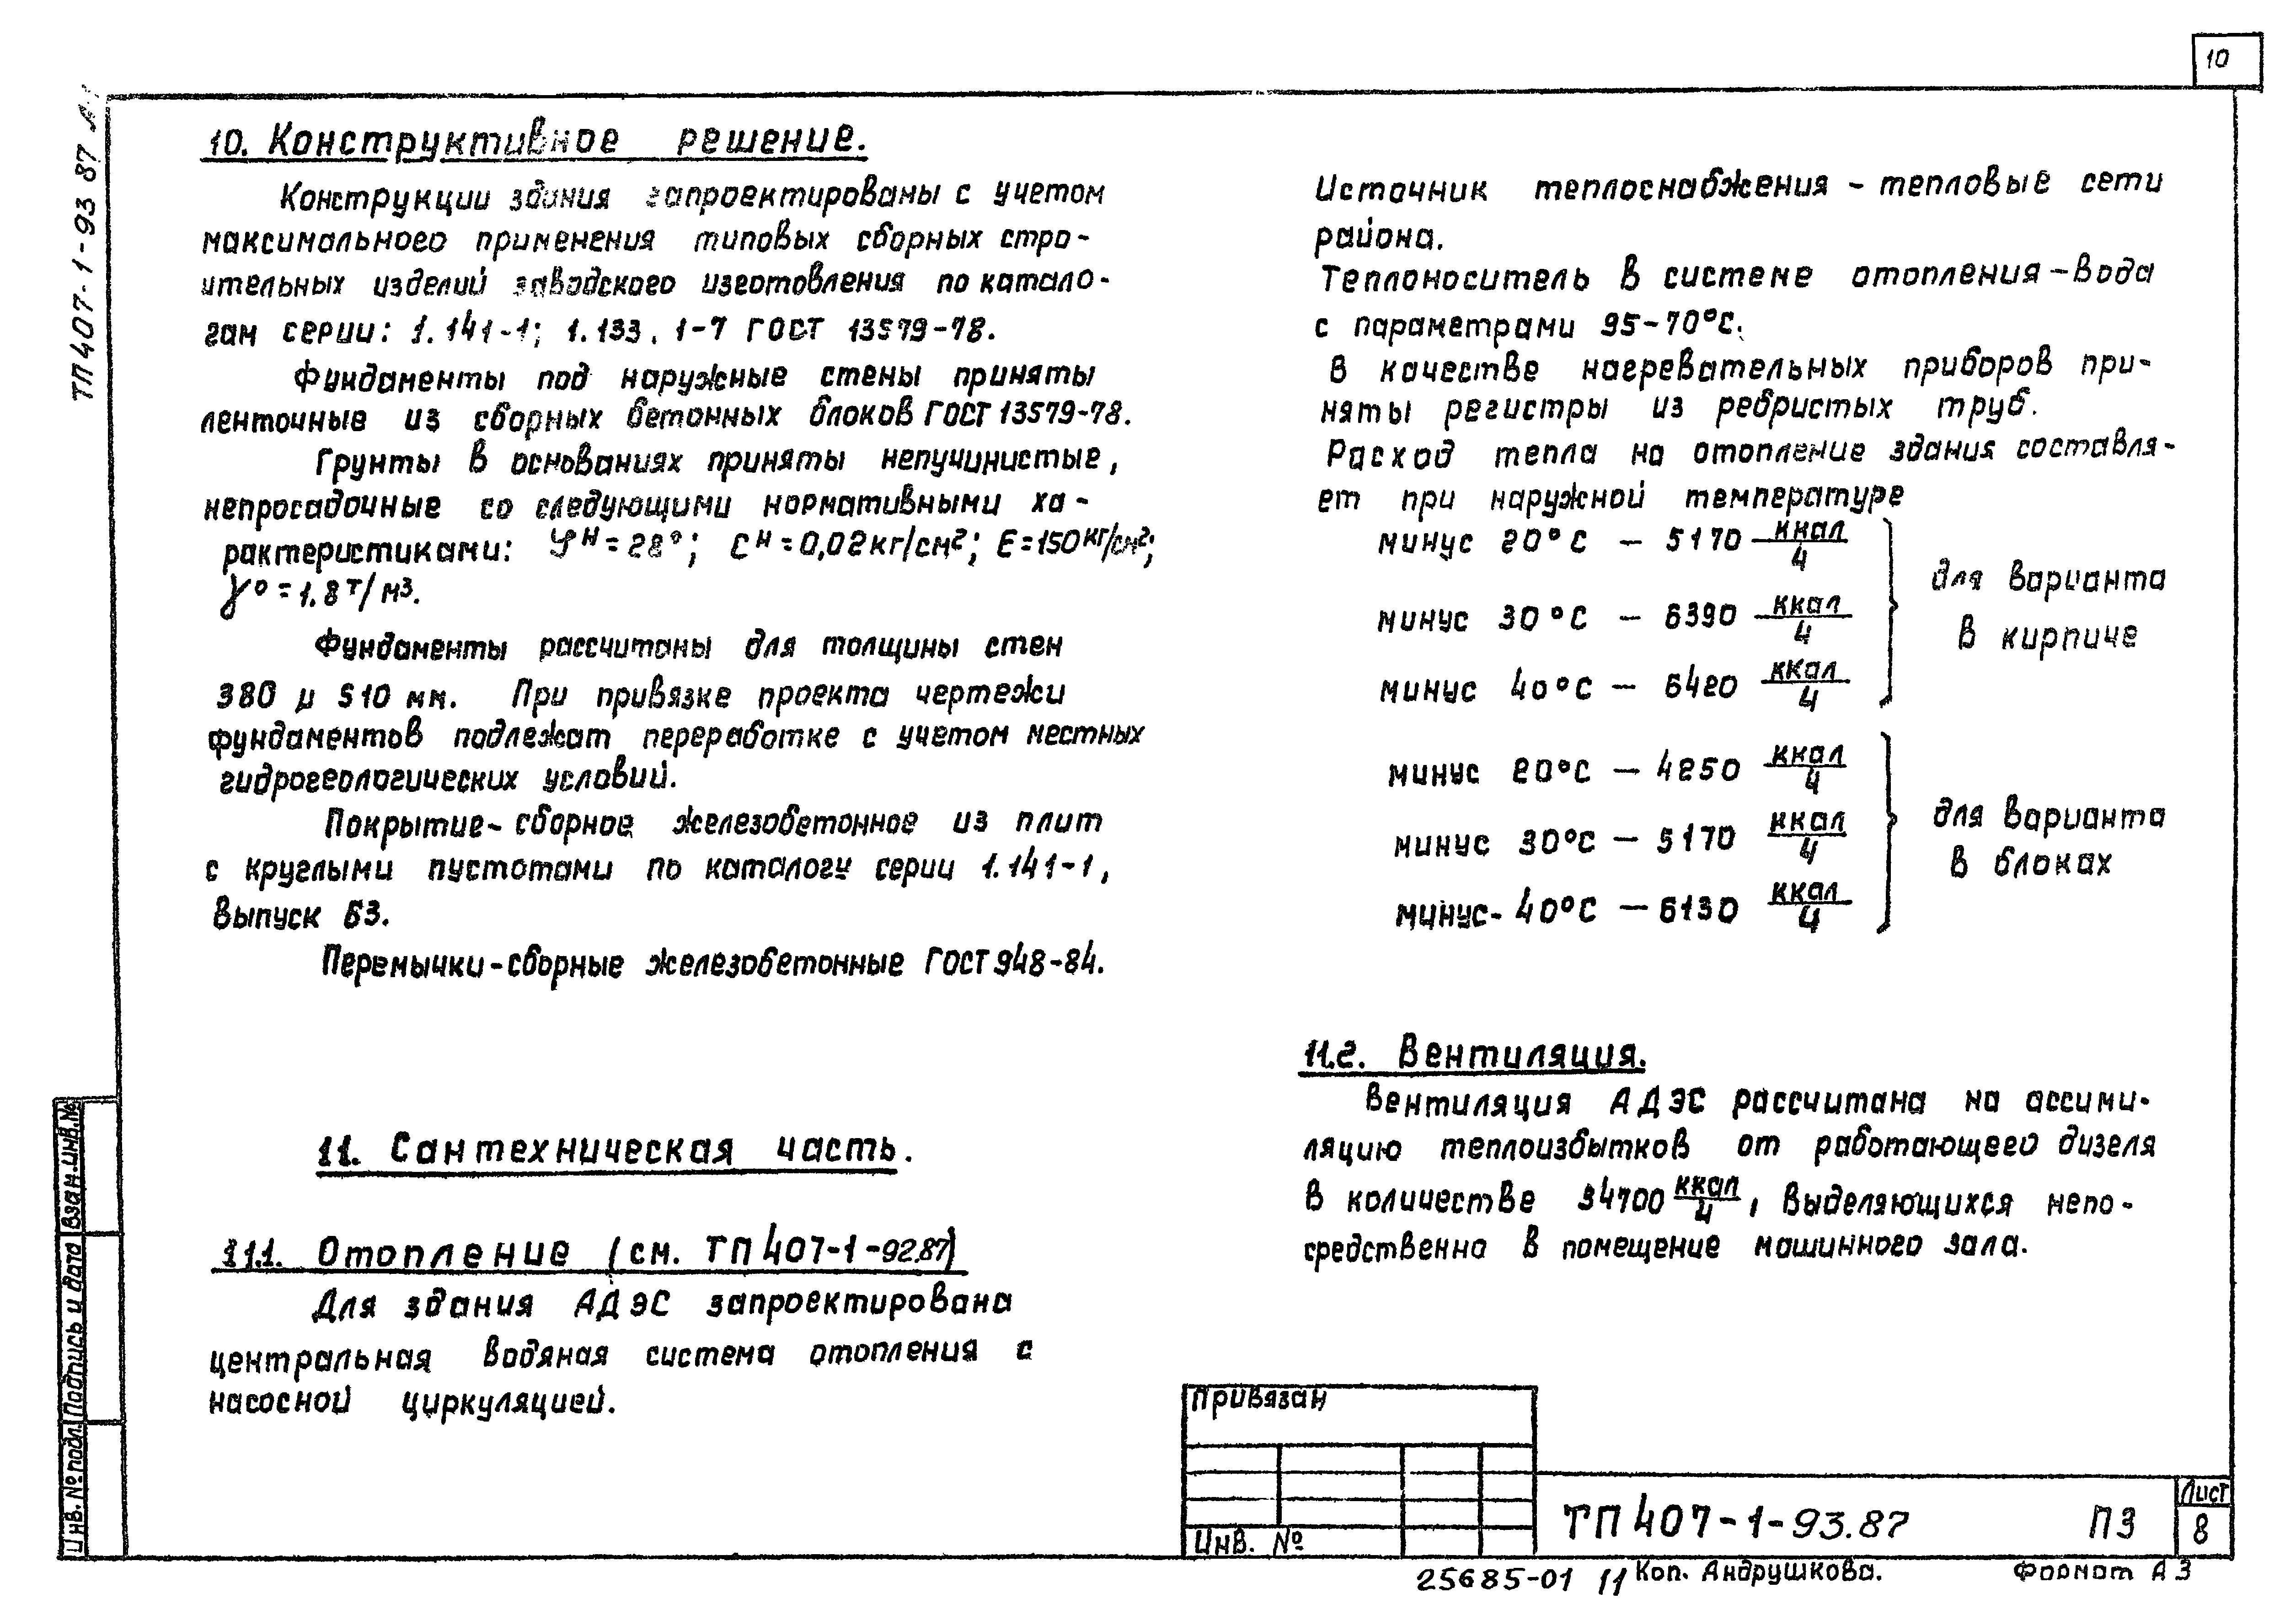 10
ТП407-1-93 87
10. Конструктивное решение.
Конструкции здания запроектированы с учетом
максимального применения типовых сборных стро-
ительных изделий заводского изготовления по катало-
гам серии: 1.141-1; 1.133.1-7 ГОСТ 13579-78.
Фундаменты под наружные стены приняты
ленточные из сборных бетонных блоков ГОСТ 13579-78.
Грунты в основаниях приняты непучинистые,
непросадочные со следующими нормативными ха-
рактеристиками: φн=28°; Cн=0,02кг/см2; E=150кг/см2;
γо=1.8т/м3.
Фундаменты рассчитаны для толщины стен
380 и 510 мм. При привязке проекта чертежи
фундаментов подлежат переработке с учетом местных
гидрогеологических условий.
Покрытие-сборное железобетонное из плит
с круглыми пустотами по каталогу серии 1.141-1,
выпуск 63.
Перемычки-сборные железобетонные ГОСТ 948-84.
11. Сантехническая часть.
11.1. Отопление (см. ТП407-1-92.87)
Для здания АДЭС запроектирована
центральная водяная система отопления с
насосной циркуляцией.
Источник теплоснабжения - тепловые сети
района.
Теплоноситель в системе отопления-вода
с параметрами 95-70°С.
В качестве нагревательных приборов при-
няты регистры из ребристых труб.
Расход тепла на отопление здания составля-
ет при наружной температуре
минус 20°С - 5170 ккал/ч
минус 30°С - 6390 ккал/ч
минус 40°С - 6420 ккал/ч
для варианта
в кирпиче
минус 20°С - 4250 ккал/ч
минус 30°С - 5170 ккал/ч
минус- 40°С - 6130 ккал/ч
для варианта
в блоках
11.2. Вентиляция.
Вентиляция АДЭС рассчитана на ассими-
ляцию теплоизбытков от работающего дизеля
в количестве 34700 ккал/ч, выделяющихся непо-
средственно в помещение машинного зала.
Взан.инв.№
Подпись и дата
Инв. № подл.
Привязан
Инв. №
ТП407-1-93.87
ПЗ
Лист
8
25685-01 11
Коп. Андрушкова.
Формат А3